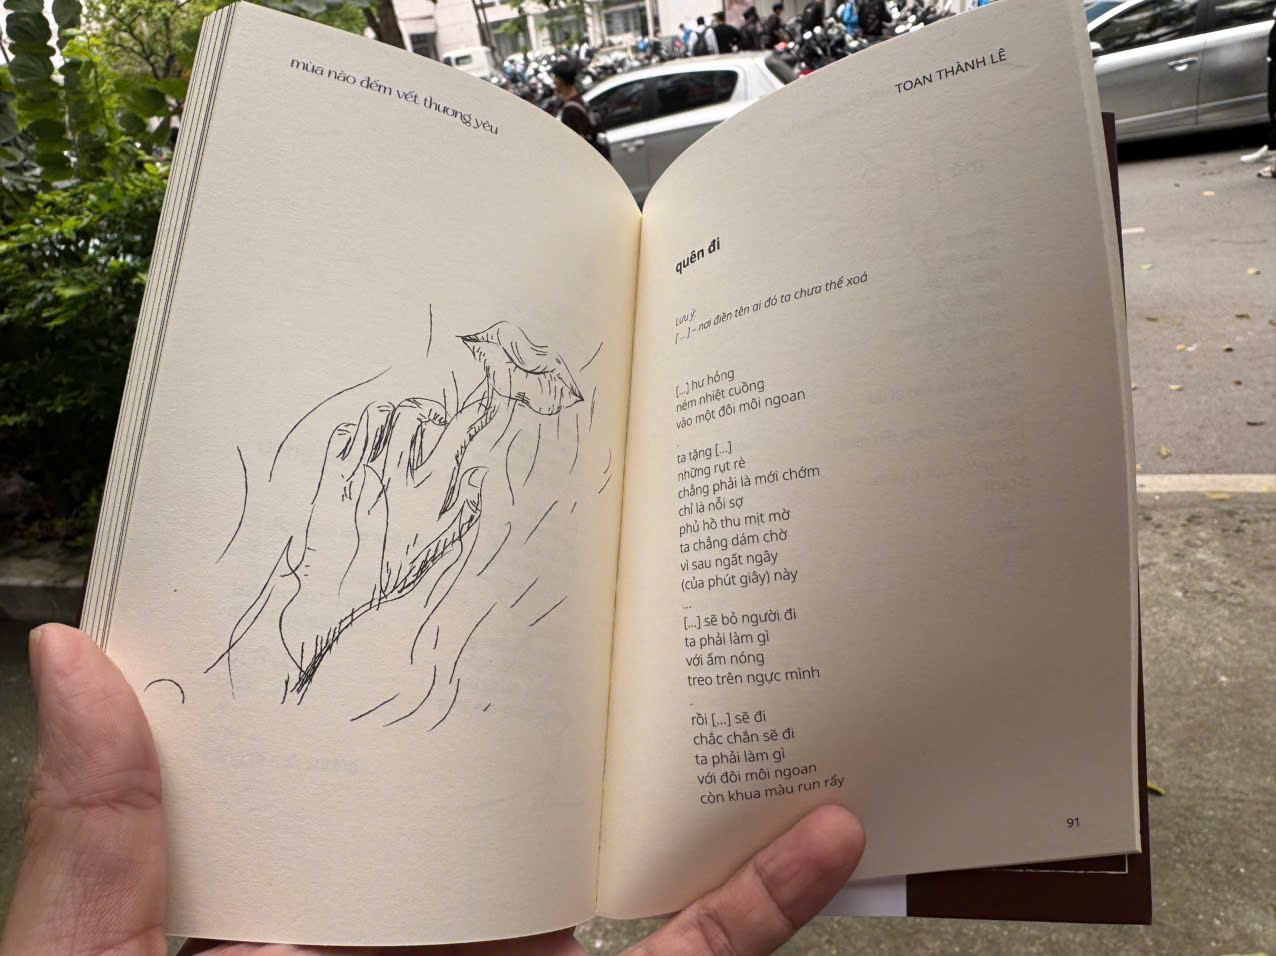 mùa nào đếm vết thương yêu
TOAN THÀNH LÊ
quên đi
Lưu ý:
[...] – nơi điền tên ai đó ta chưa thể xoá
[...] hư hỏng
ném nhiệt cuồng
vào một đôi môi ngoan
.
ta tặng [...]
những rụt rè
chẳng phải là mới chớm
chỉ là nỗi sợ
phủ hồ thu mịt mờ
ta chẳng dám chờ
vì sau ngất ngây
(của phút giây) này
...
[...] sẽ bỏ người đi
ta phải làm gì
với ấm nóng
treo trên ngực mình
.
rồi [...] sẽ đi
chắc chắn sẽ đi
ta phải làm gì
với đôi môi ngoan
còn khua màu run rẩy
91